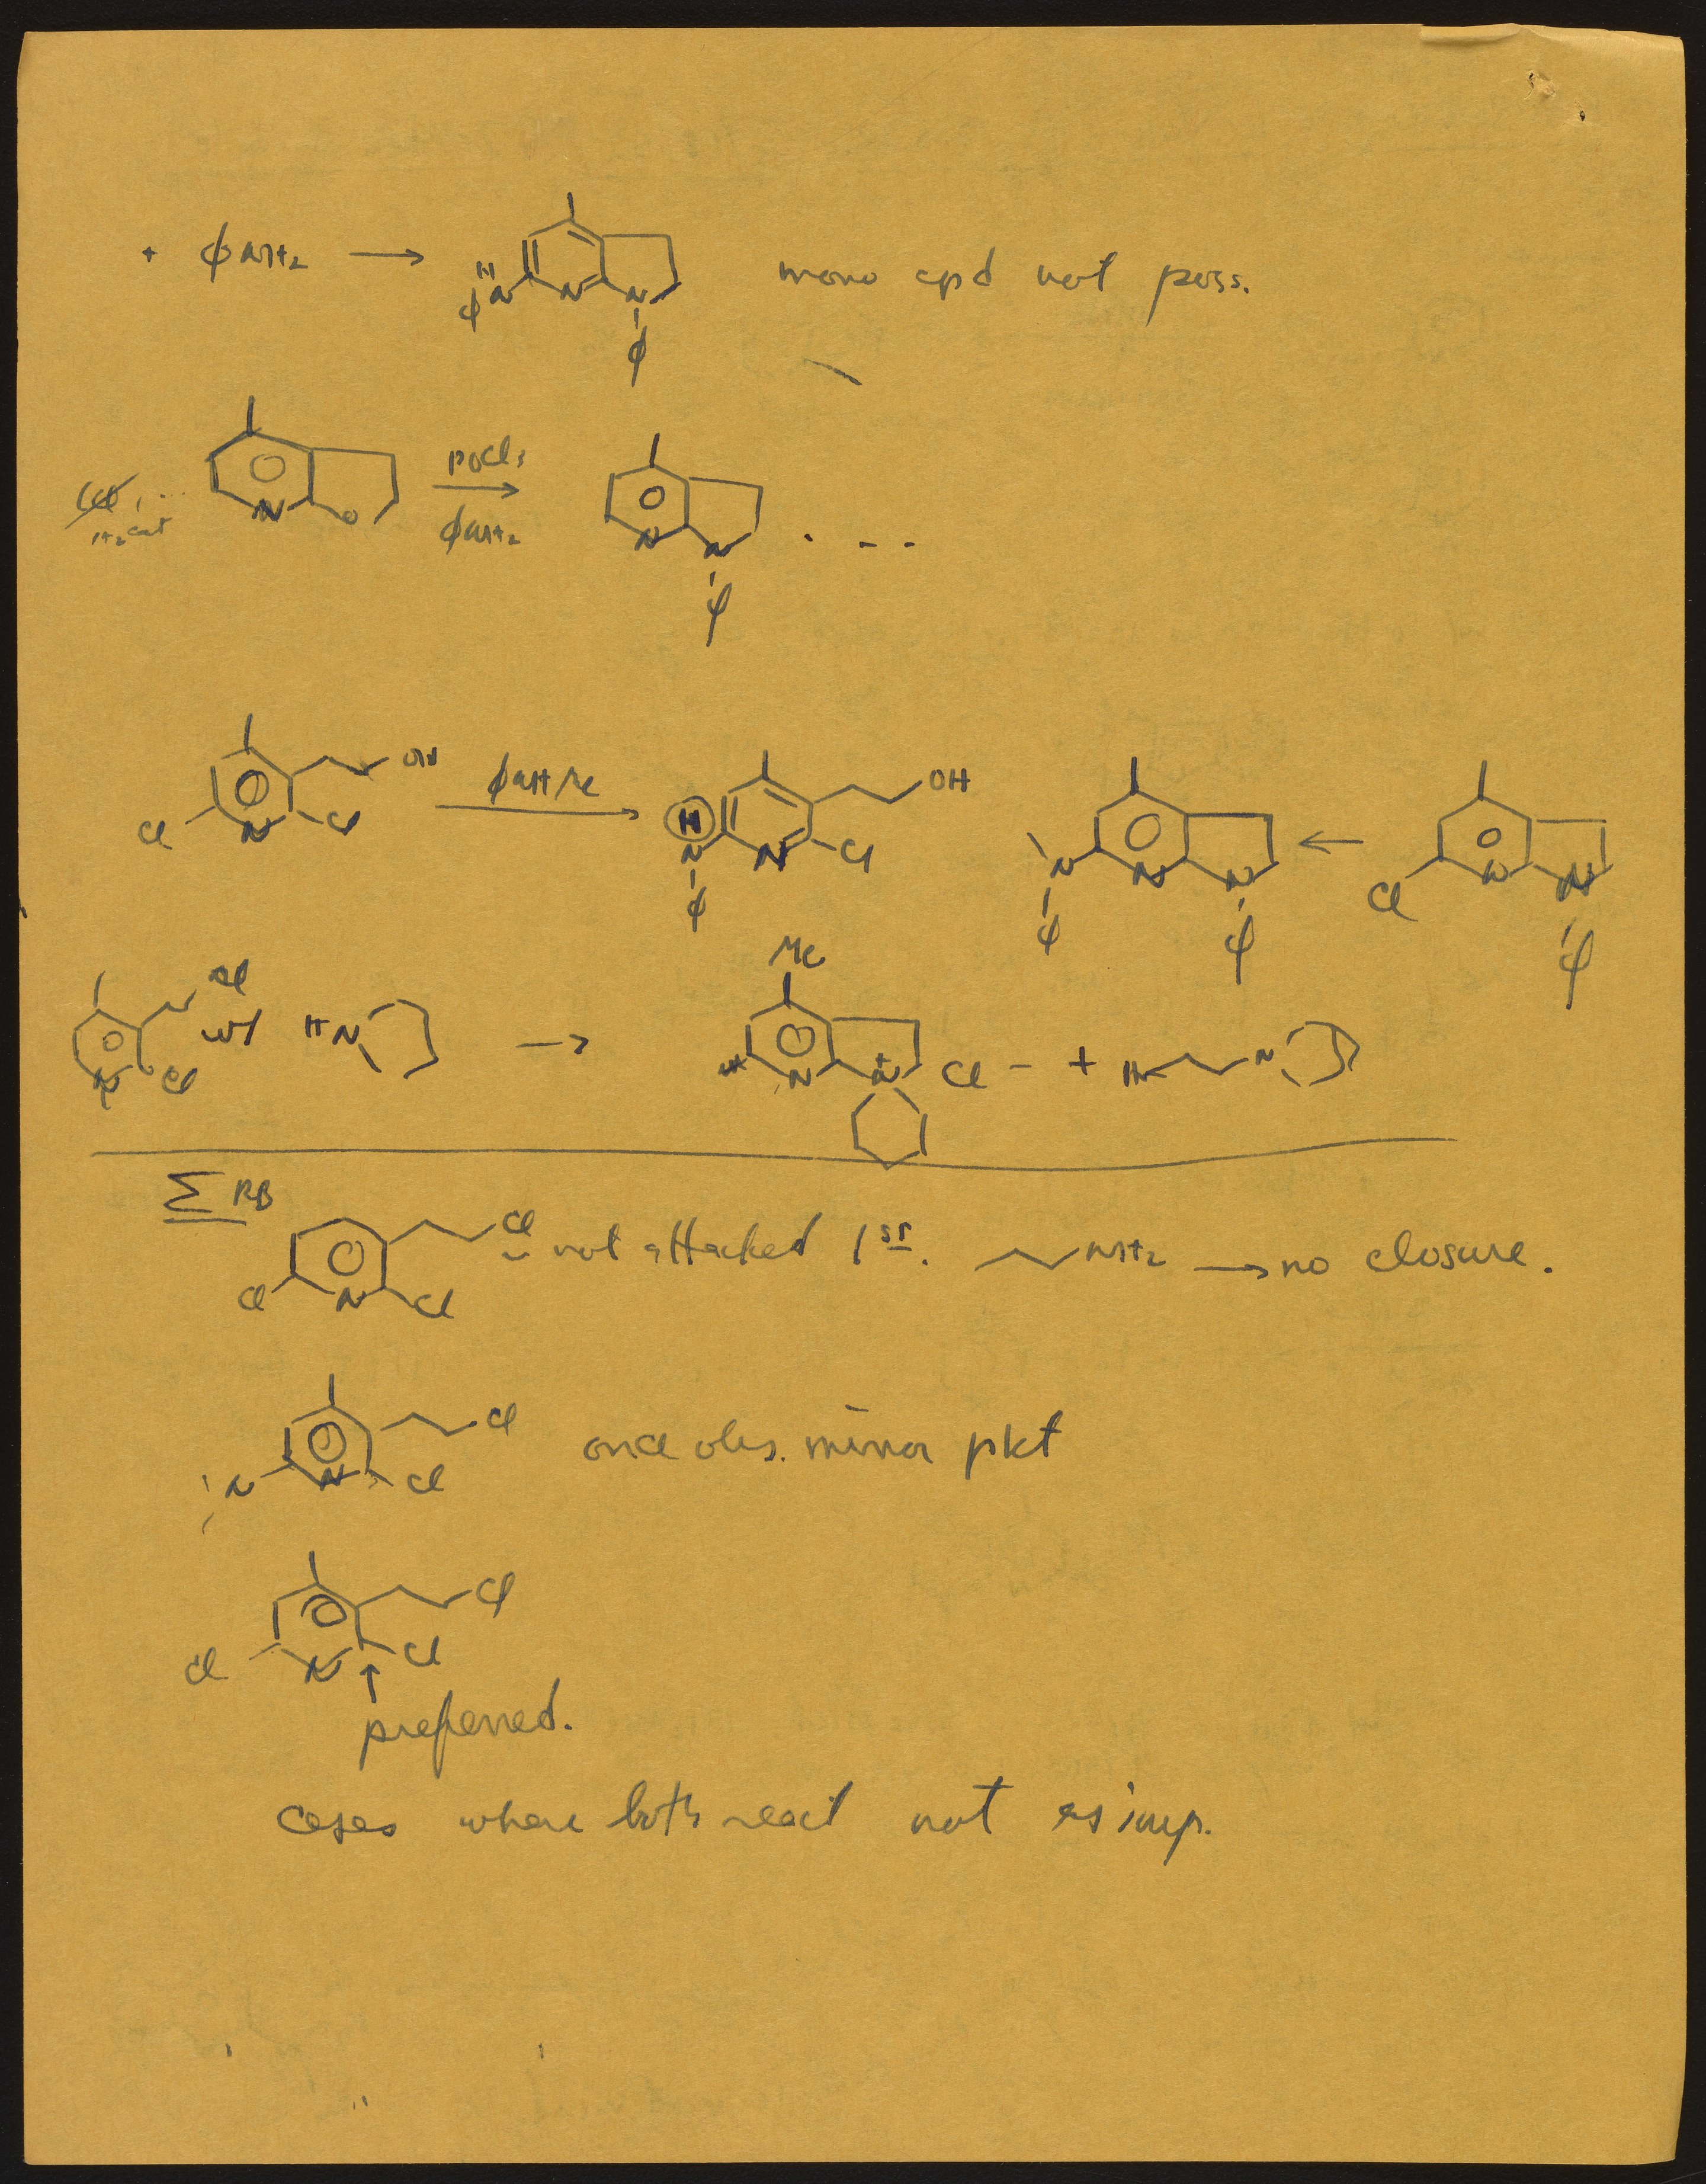 + φNH₂ → H N φ N N φ mono cpd not poss.
H₂ cat N O POCl₃ φNH₂ N N φ . - -
Cl N Cl OH φNHMe H N φ N Cl OH N φ N N φ ← Cl N N φ
N Cl Cl w/ HN → Me N N⁺ Cl⁻ + N
Σ RB
Cl N Cl Cl not attacked 1st. NH₂ → no closure.
N N Cl Cl once obs. minor pkt
Cl N Cl Cl
↑
preferred.
cases where both react not as imp.